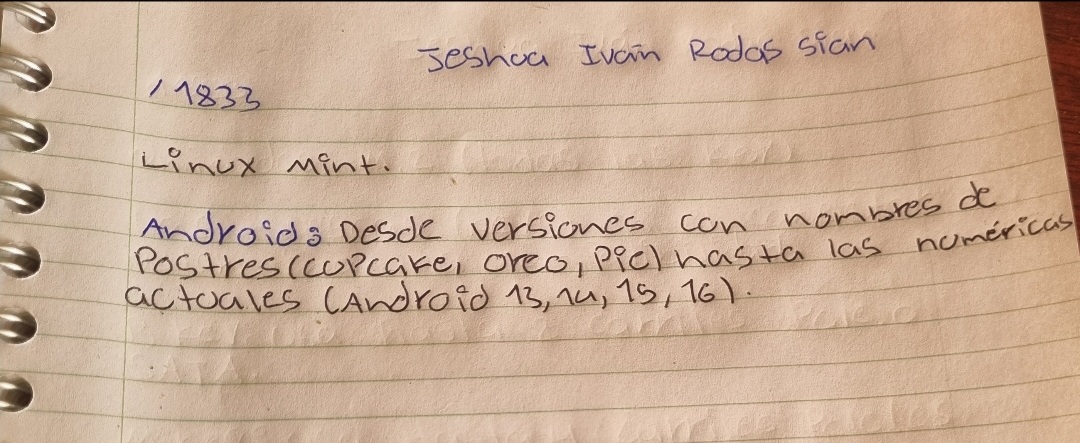 Jeshua Ivan Rodas Sian
/ 1833
Linux Mint.
Android: Desde versiones con nombres de
Postres (cupcake, oreo, Pie) hasta las numéricas
actuales (Android 13, 14, 15, 16).